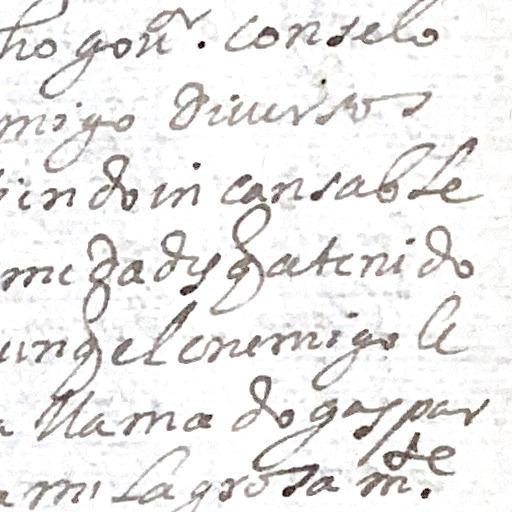 ho gou^r. con selo
migo diuersos
indo in cansable
me dad y q atenido
unq el enemigo le
a llama do gaspar
a mi lagrosa m^te.